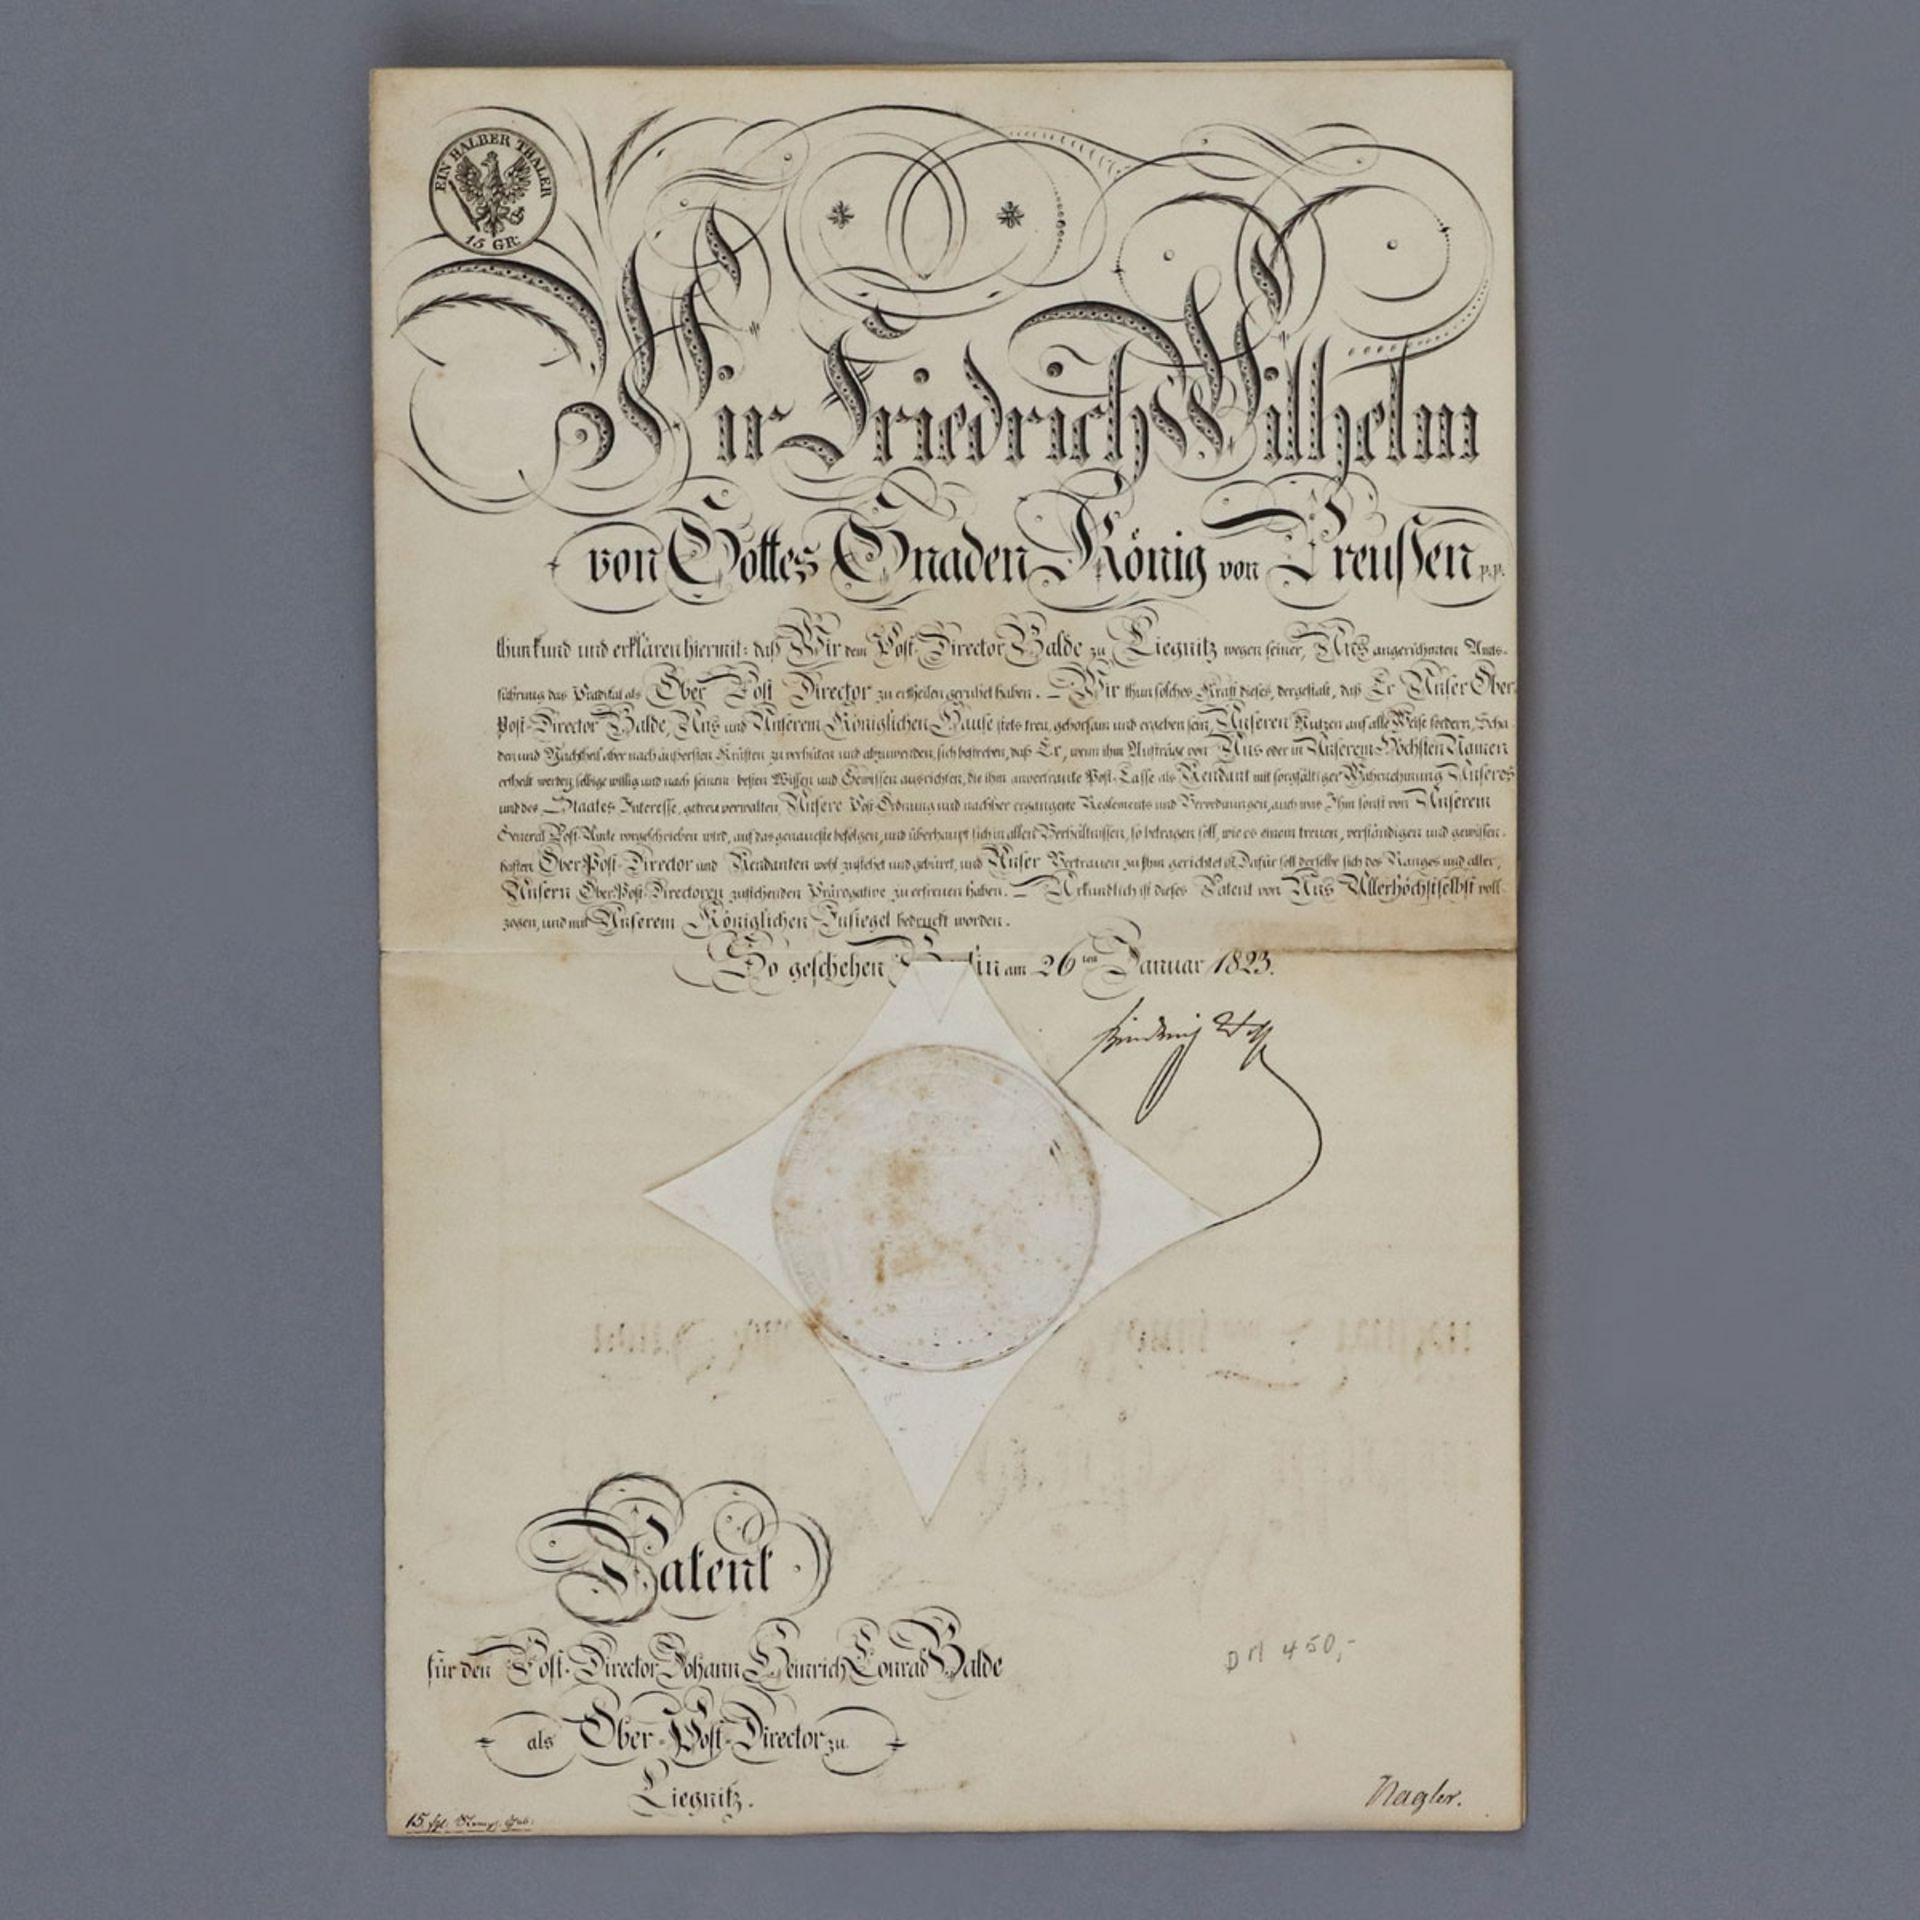 EIN HALBER THALER
15 GR:
Wir Friedrich Wilhelm
von Gottes Gnaden König von Preußen p.p.
thun kund und erklären hiermit: daß Wir dem Post-Director Balde zu Liegnitz wegen seiner, Uns angerühmten Amts-
führung das Prädikat als Ober Post Director zu ertheilen geruhet haben. — Wir thun solches Kraft dieses, dergestalt, daß Er Unser Ober
Post-Director Balde, Uns und Unserem Königlichen Hause stets treu, gehorsam und ergeben sein, Unseren Nutzen auf alle Weise fördern, Scha-
den und Nachtheil aber nach äußersten Kräften zu verhüten und abzuwenden, sich bestreben, daß Er, wenn ihm Aufträge von Uns oder in Unserem Höchsten Namen
ertheilt werden, selbige willig und nach seinem besten Wissen und Gewissen ausrichten, die ihm anvertraute Post-Casse als Rendant mit sorgfältiger Wahrnehmung Unseres
und des Staates Interesse, getreu verwalten, Unsere Post-Ordnung und nachher ergangene Reglements und Verordnungen, auch was Ihm sonst von Unserem
General Post-Amte vorgeschrieben wird, auf das genaueste befolgen, und überhaupt sich in allen Verhältnissen, so betragen soll, wie es einem treuen, verständigen und gewissen-
haften Ober Post-Director und Rendanten wohl zustehet und gebüret, und Unser Vertrauen zu Ihm gerichtet ist. Dafür soll derselbe sich des Ranges und aller,
Unsern Ober-Post-Directoren zustehenden Prärogative zu erfreuen haben. — Urkundlich ist dieses Patent von Uns Allerhöchstselbst voll-
zogen, und mit Unserem Königlichen Insiegel bedruckt worden.
So geschehen Berlin am 26ten Januar 1823.
Friedrich Wilh
Patent
für den Post-Director Johann Heinrich Conrad Balde
als Ober-Post-Director zu
Liegnitz.
DM 450,-
Nagler.
15 sgl. Stemp. Geb.